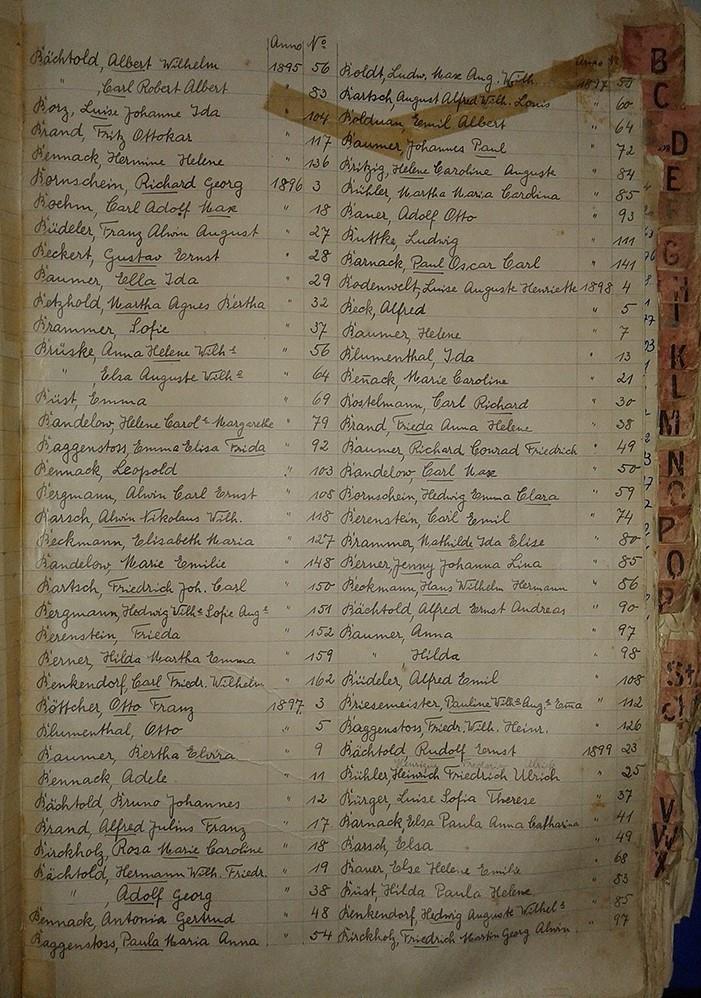 Anno No
Bächtold, Albert Wilhelm 1895 56
" , Carl Robert Albert " 83
Borz, Luise Johanne Ida " 104
Brand, Fritz Ottokar " 117
Bennack, Hermine Helene " 136
Bornschein, Richard Georg 1896 3
Boehm, Carl Adolf Max " 18
Büdeler, Franz Alwin August " 27
Beckert, Gustav Ernst " 28
Baumer, Ella Ida " 29
Betzhold, Martha Agnes Bertha " 32
Brammer, Sofie " 37
Brüske, Anna Helene Wilhe " 56
" , Elsa Auguste Wilhe " 64
Büst, Emma " 69
Bandelow, Helene Carole Margarethe " 79
Baggenstoss, Emma Elisa Frida " 92
Bennack, Leopold " 103
Bergmann, Alwin Carl Ernst " 108
Barsch, Alwin Nikolaus Wilh. " 118
Beckmann, Elisabeth Maria " 127
Bandelow, Marie Emilie " 148
Bartsch, Friedrich Joh. Carl " 150
Bergmann, Hedwig Wilhe Sofie Auge " 151
Berenstein, Frieda " 152
Berner, Hilda Martha Emma " 159
Benkendorf, Carl Friedr. Wilhelm " 162
Böttcher, Otto Franz 1897 3
Blumenthal, Otto " 5
Baumer, Bertha Elvira " 9
Bennack, Adele " 11
Bächtold Bruno Johannes " 12
Brand, Alfred Julius Franz " 17
Birckholz, Rosa Marie Caroline " 18
Bächtold, Hermann Wilh. Friedr. " 19
" , Adolf Georg " 38
Bennack, Antonia Gertrud " 48
Baggenstoss, Paula Maria Anna " 54
Anno
Boldt, Ludw. Max Aug. Wilh. 1897 55
Bartsch, August Alfred Wilh. Louis " 60
Bolduan, Emil Albert " 64
Baumer, Johannes Paul " 72
Britzig, Helene Caroline Auguste " 84
Bühler, Martha Maria Cardina " 85
Bauer, Adolf Otto " 93
Buttke, Ludwig " 111
Barnack, Paul Oscar Carl " 141
Bodenwelt, Luise Auguste Henriette 1898 4
Beck, Alfred " 5
Baumer, Helene " 7
Blumenthal, Ida " 13
Beñack, Marie Caroline " 21
Bostelmann, Carl Richard " 30
Brand, Frieda Anna Helene " 38
Baumer, Richard Conrad Friedrich " 49
Bandelow, Carl Max " 50
Bornschein, Hedwig Emma Clara " 59
Berenstein, Carl Emil " 74
Brammer, Mathilde Ida Elise " 80
Berner, Jenny Johanna Lina " 85
Beckmann, Hans Wilhelm Hermann " 86
Bächtold, Alfred Ernst Andreas " 90
Baumer, Anna " 97
" Hilda " 98
Büdeler, Alfred Emil " 108
Briesemeister, Pauline Wilhe Auge Ema " 112
Baggenstoss, Friedr. Wilh. Heinr. " 126
Bächtold Rudolf Ernst 1899 23
Bühler, Heinrich Friedrich Ulrich " 25
Bürger, Luise Sofia Therese " 37
Barnack, Elsa Paula Anna Catharina " 41
Barsch, Elsa " 49
Bauer, Else Helene Emilie " 68
Büst, Hilda Paula Helene " 83
Benkendorf, Hedwig Auguste Wilhels " 85
Birckholz, Friedrich Martin Georg Alwin " 97
B
C
D
E
F
G
H
I
K
L
M
N
O
P
Q
St
V
W